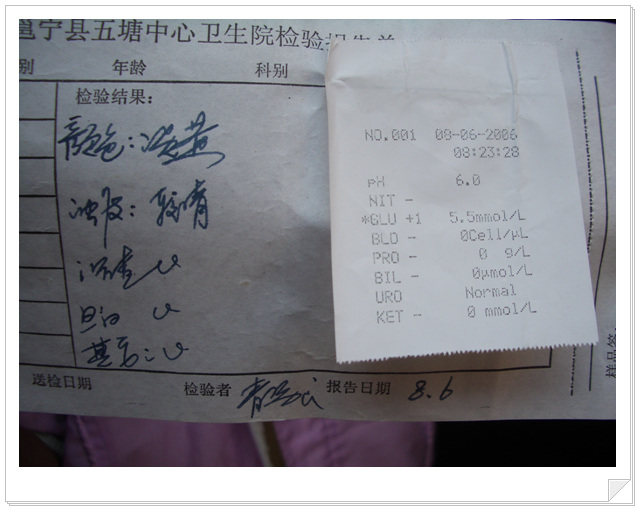 邕宁县五塘中心卫生院检验报告单
别 年龄 科别
检验结果:
颜色:淡黄
浊度:较清
沉查 u
旦白 u
其它:u
送检日期 检验者 报告日期 8.6
NO.001 08-06-2006
08:23:28
pH 6.0
NIT -
*GLU +1 5.5mmol/L
BLO - 0Cell/μL
PRO - 0 g/L
BIL - 0μmol/L
URO Normal
KET - 0 mmol/L
样品签